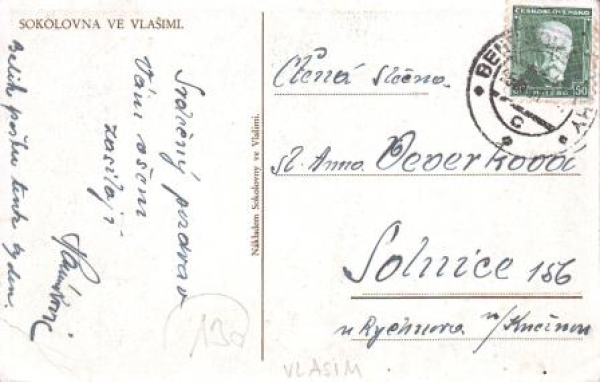 SOKOLOVNA VE VLAŠIMI.
Srdečný pozdrav
Vám všem
zasílají
tento týden.
Nákladem Sokolovny ve Vlašimi.
ČESKOSLOVENSKO
50
Ctěná slečna
sl. Anna Veverková
Solnice 156
u Rychnova n/Kněžnou
130
VLASIM